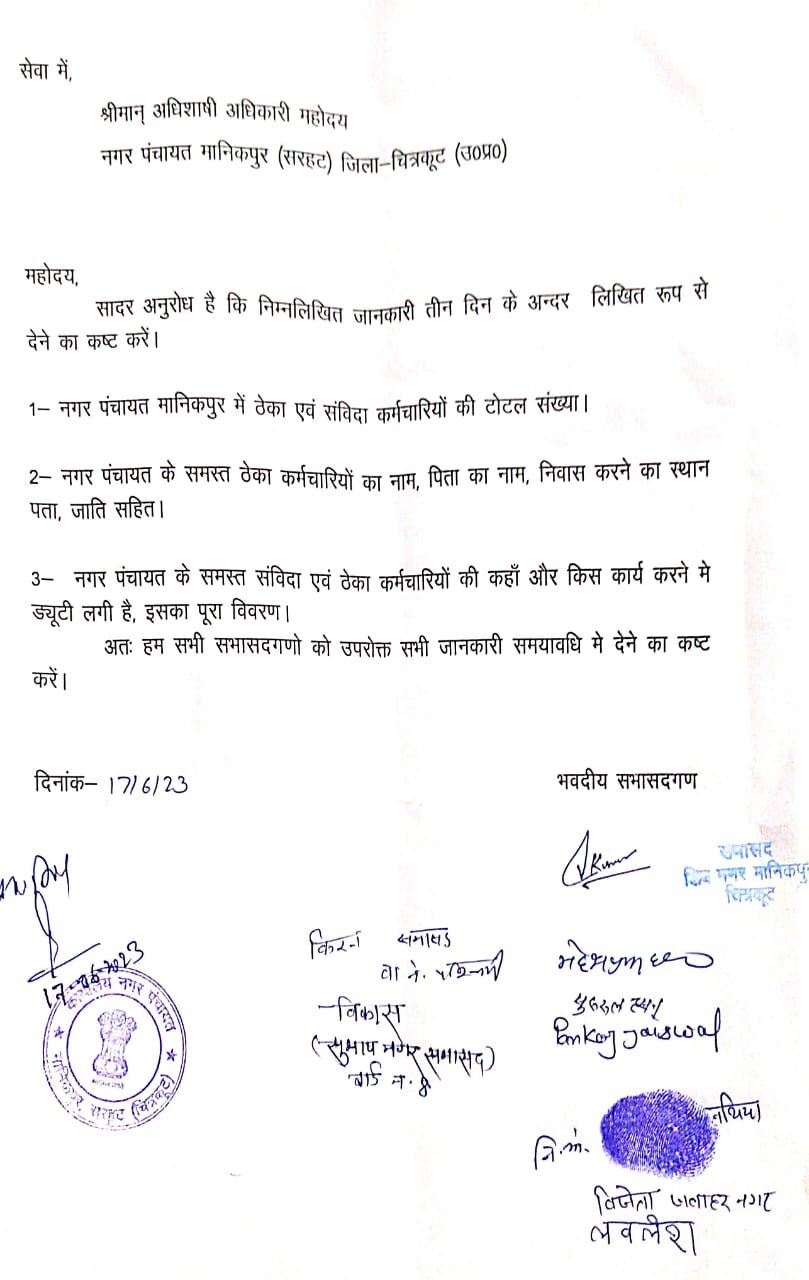 सेवा में,
श्रीमान् अधिशाषी अधिकारी महोदय
नगर पंचायत मानिकपुर (सरहट) जिला–चित्रकूट (उ०प्र०)
महोदय,
सादर अनुरोध है कि निम्नलिखित जानकारी तीन दिन के अन्दर लिखित रूप से
देने का कष्ट करें।
1– नगर पंचायत मानिकपुर में ठेका एवं संविदा कर्मचारियों की टोटल संख्या।
2– नगर पंचायत के समस्त ठेका कर्मचारियों का नाम, पिता का नाम, निवास करने का स्थान
पता, जाति सहित।
3– नगर पंचायत के समस्त संविदा एवं ठेका कर्मचारियों की कहाँ और किस कार्य करने मे
ड्यूटी लगी है, इसका पूरा विवरण।
अतः हम सभी सभासदगणो को उपरोक्त सभी जानकारी समयावधि मे देने का कष्ट
करें।
दिनांक– 17/6/23
भवदीय सभासदगण
VKumar
सभासद
नगर मानिकपुर
चित्रकूट
17-06-2023
कार्यालय नगर पंचायत
मानिकपुर, सरहट (चित्रकूट)
किरन सभासद
विकास
(सुभाष नगर सभासद)
वार्ड न. 8
Pankaj Jaiswal
नि.अं.
नथिया
विजेता जवाहर नगर
लवलेश